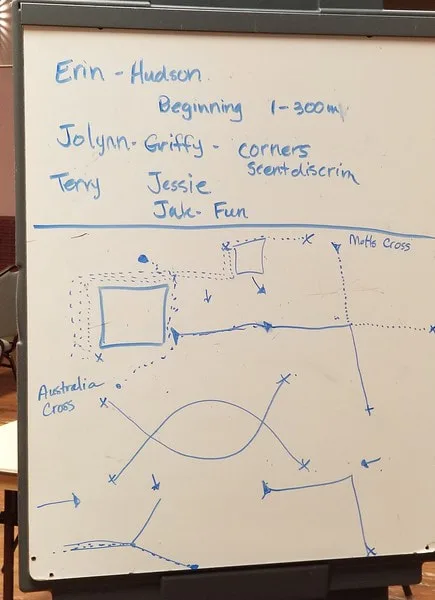 Erin - Hudson
Beginning 1-300m
Jolynn - Griffy - corners
Scent discrim
Terry Jessie
Jak - Fun
Motts Cross
Australia
Cross